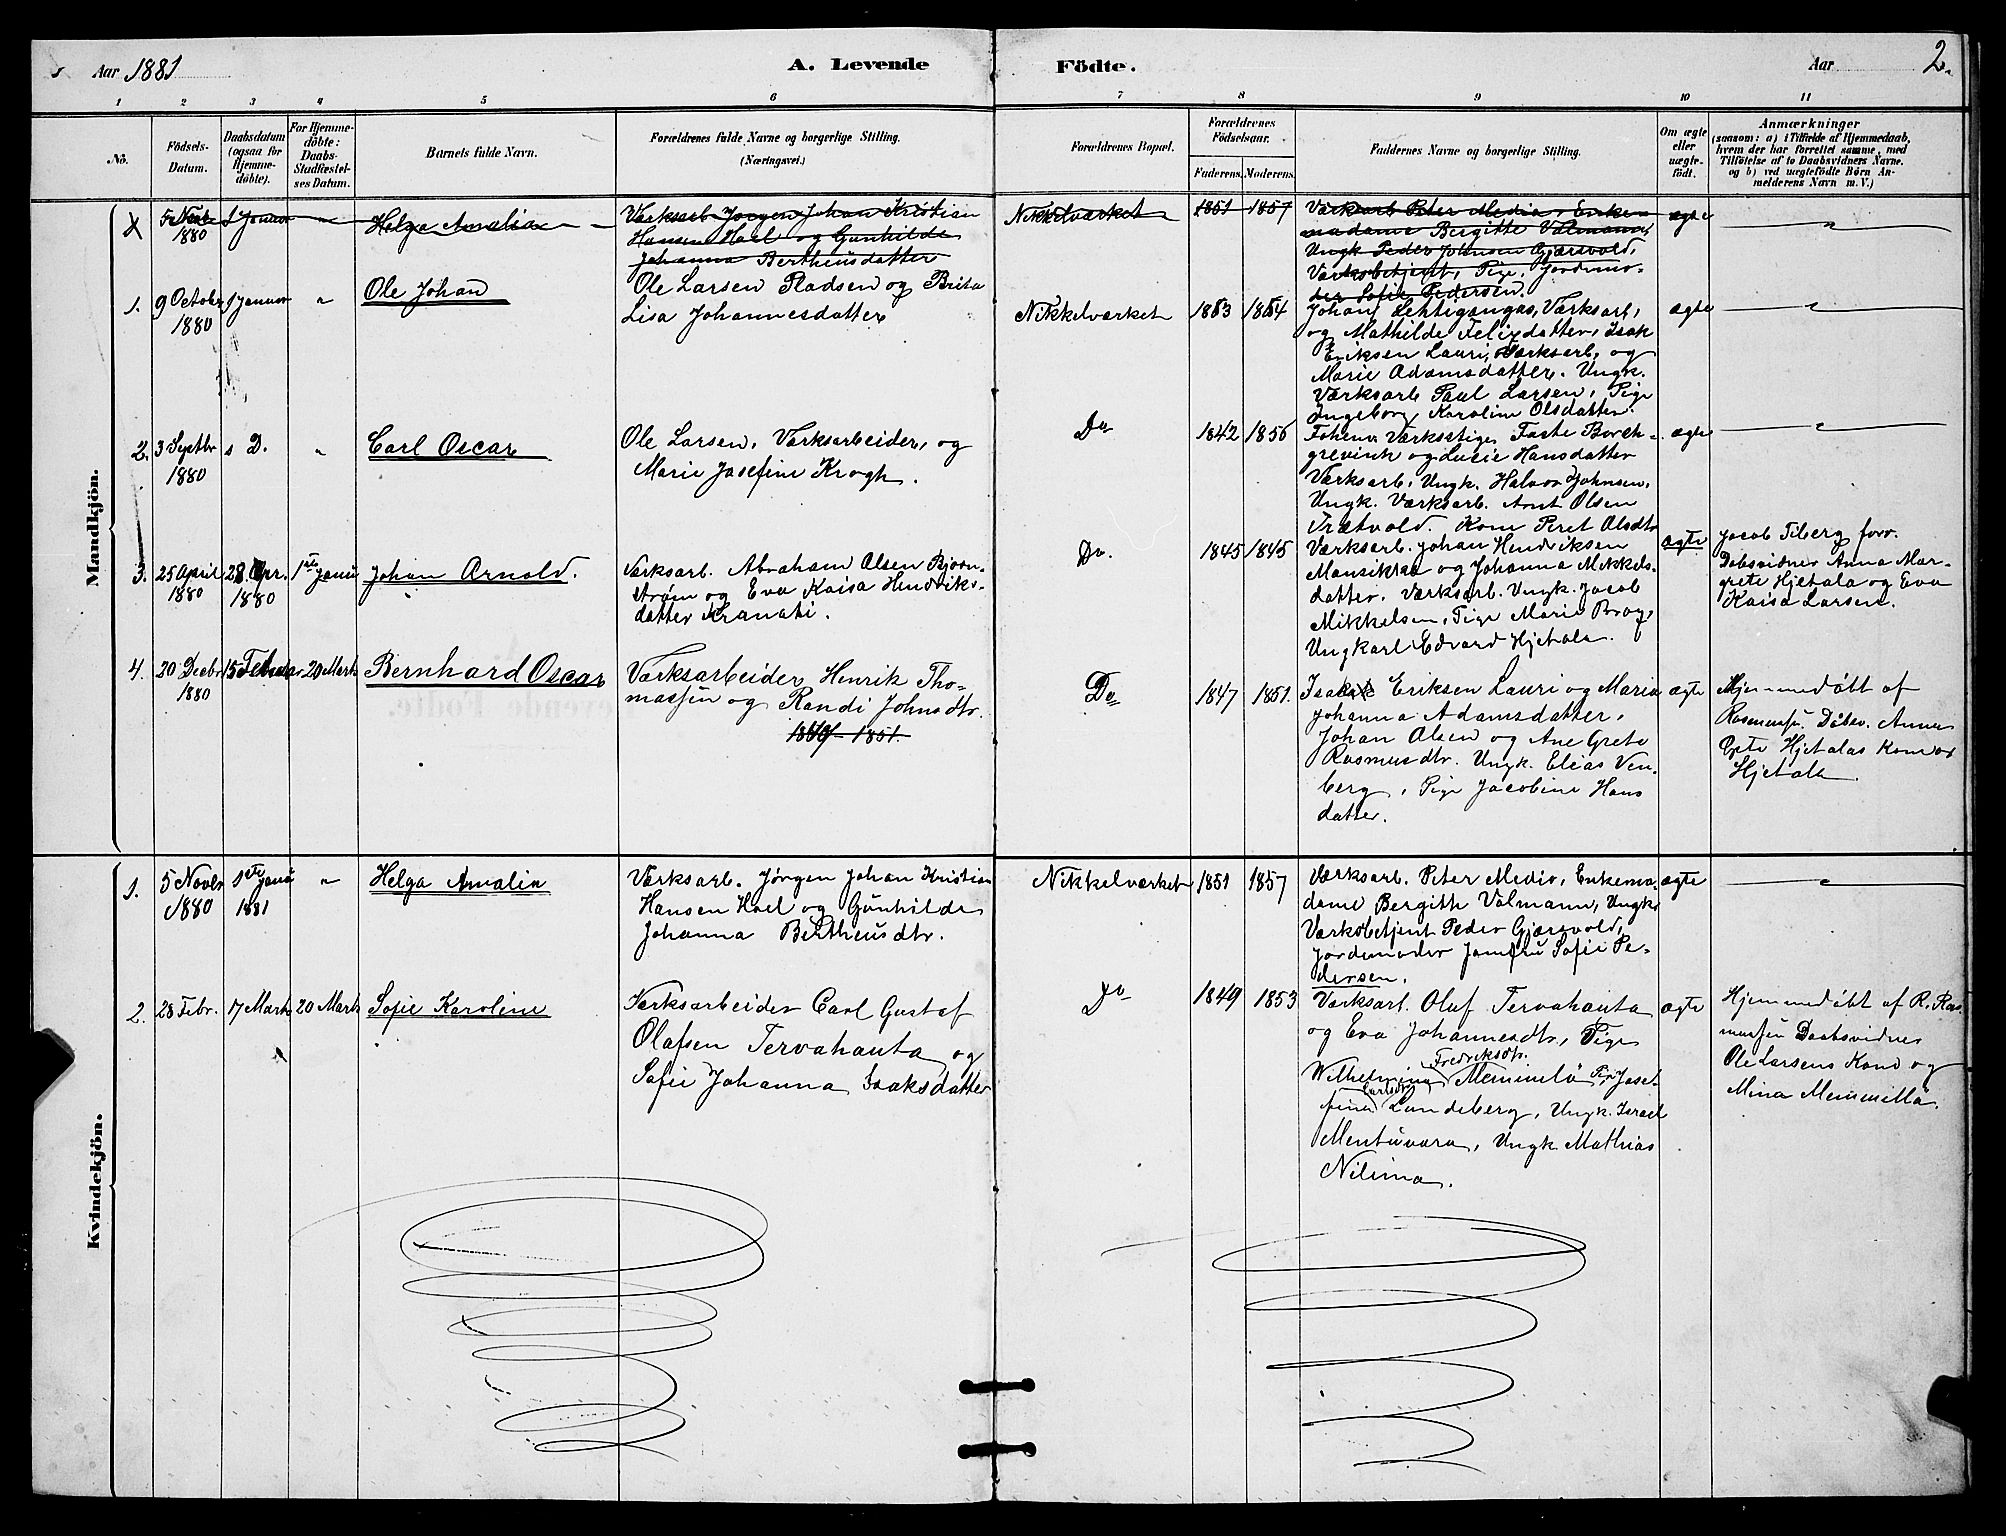 Aar 1881
A. Levende
Födte.
Aar
2.
1 2 3 4 5 6 7 8 9 10 11
No.
Födsels-Datum.
Daabsdatum (ogsaa for Hjemme-döbte).
For Hjemme-döbte: Daabs-Stadfæstel-ses Datum.
Barnets fulde Navn.
Forældrenes fulde Navne og borgerlige Stilling.
(Næringsvei.)
Forældrenes Bopæl.
Forældrenes Födselsaar.
Faderens. Moderens.
Faddernes Navne og borgerlige Stilling.
Om ægte eller uægte-födt.
Anmærkninger
(saasom: a) i Tilfælde af Hjemmedaab,
hvem der har forrettet samme, med
Tilföielse af to Daabsvidners Navne.
og b) ved uægtefödte Börn An-
melderens Navn m. V.)
Mandkjön.
5 Novbr 1880
1 Januar
"
Helga Amalia
Værksarb Jørgen Johan Kristian
Hansen Hoel og Gunhilde
Johanna Bertheusdatter
Nikkelværket
1851 1857
Værksarb Peter Medio, Enke
madame Bergitte Valmann,
Ungk Peder Johnsen Gjærsvold,
Værksbetjent, Pige, Jordemo-
der Sofie Pedersen.
ægte
"
1.
9 Octobr 1880
1 Januar
"
Ole Johan
Ole Larsen Pladsen og Brita
Lisa Johannesdatter
Nikkelværket
1853 1854
Johan Lehtigangas, Værksarb,
og Mathilde Felixdatter, Isak
Eriksen Lauri, Værksarb, og
Marie Adamsdatter. Ungk.
Værksarb Paul Larsen, Pige
Ingeborg Karoline Olsdatter.
ægte
"
2.
3 Septbr 1880
s D.
"
Carl Oscar
Ole Larsen, Værksarbeider, og
Marie Josefine Krogh.
Do
1842 1856
Værksstiger Faste Borch-
grevink og Lucie Hansdatter
Værksarb, Ungk. Halvor Johnsen,
Ungk. Værksarb. Arnt Olsen
Trætvold. Kone Peret Olsdtr
ægte
"
3.
25 April 1880
28 Apr. 1880
1ste Janu
Johan Arnold.
Værksarb. Abraham Olsen Bjørn-
strøm og Eva Kaisa Hendriks-
datter Kranati.
Do.
1845 1845
Værksarb. Johan Hendriksen
Mansikka og Johanna Mikkels-
datter. Værksarb. Ungk. Jacob
Mikkelsen, Pige Maria Brog,
Ungkarl Edvard Hjetala.
ægte
Jacob Tiberg forr.
Dobsvidner Anna Mar-
grete Hjetala og Eva
Kaisa Larsen.
4.
20 Decbr 1880
15 Februar
20 Marts
Bernhard Oscar
Værksarbeider Henrik Tho-
massen og Randi Johnsdtr.
1849 - 1851.
Do
1847 1851.
Isak Eriksen Lauri og Maria
Johanna Adamsdatter,
Johan Olsen og Ane Grete
Rasmusdtr. Ungk. Elias Ven-
berg, Pige Jacobine Hans
datter.
ægte
Hjemmedøbt af
Rasmussen. Døbsv. Anna
Grete Hjetalas Kone
Hjetala.
Kvindekjön.
1.
5 Novbr 1880
1ste Janu 1881
"
Helga Amalia
Værksarb. Jørgen Johan Kristian
Hansen Hoel og Gunhilde
Johanna Bertheusdtr.
Nikkelværket
1851 1857
Værksarb. Peter Medio, Enkema-
dame Bergith Valmann, Ungk.
Værksbetjent Peder Gjærsvold,
Jordemoder Jomfru Sofie Pe-
dersen.
ægte
"
2.
28 Febr.
17 Marts
20 Marts
Sofie Karoline
Værksarbeider Carl Gustaf
Olafsen Tervahauta og
Sofie Johanna Isaksdatter
Do
1849 1853
Værksarb. Oluf Tervahauta
og Eva Johannesdtr, Pige
Fredriksdtr.
Wilhelmina Memmelä Pige Jose-
Carlsdtr
fina Lundeberg, Ungk. Israel
Mentuvara, Ungk Mathias
Nilima.
ægte
Hjemmedøbt af R. Ras-
mussen Daabsvidner
Ole Larsens Kone og
Mina Memmillä.